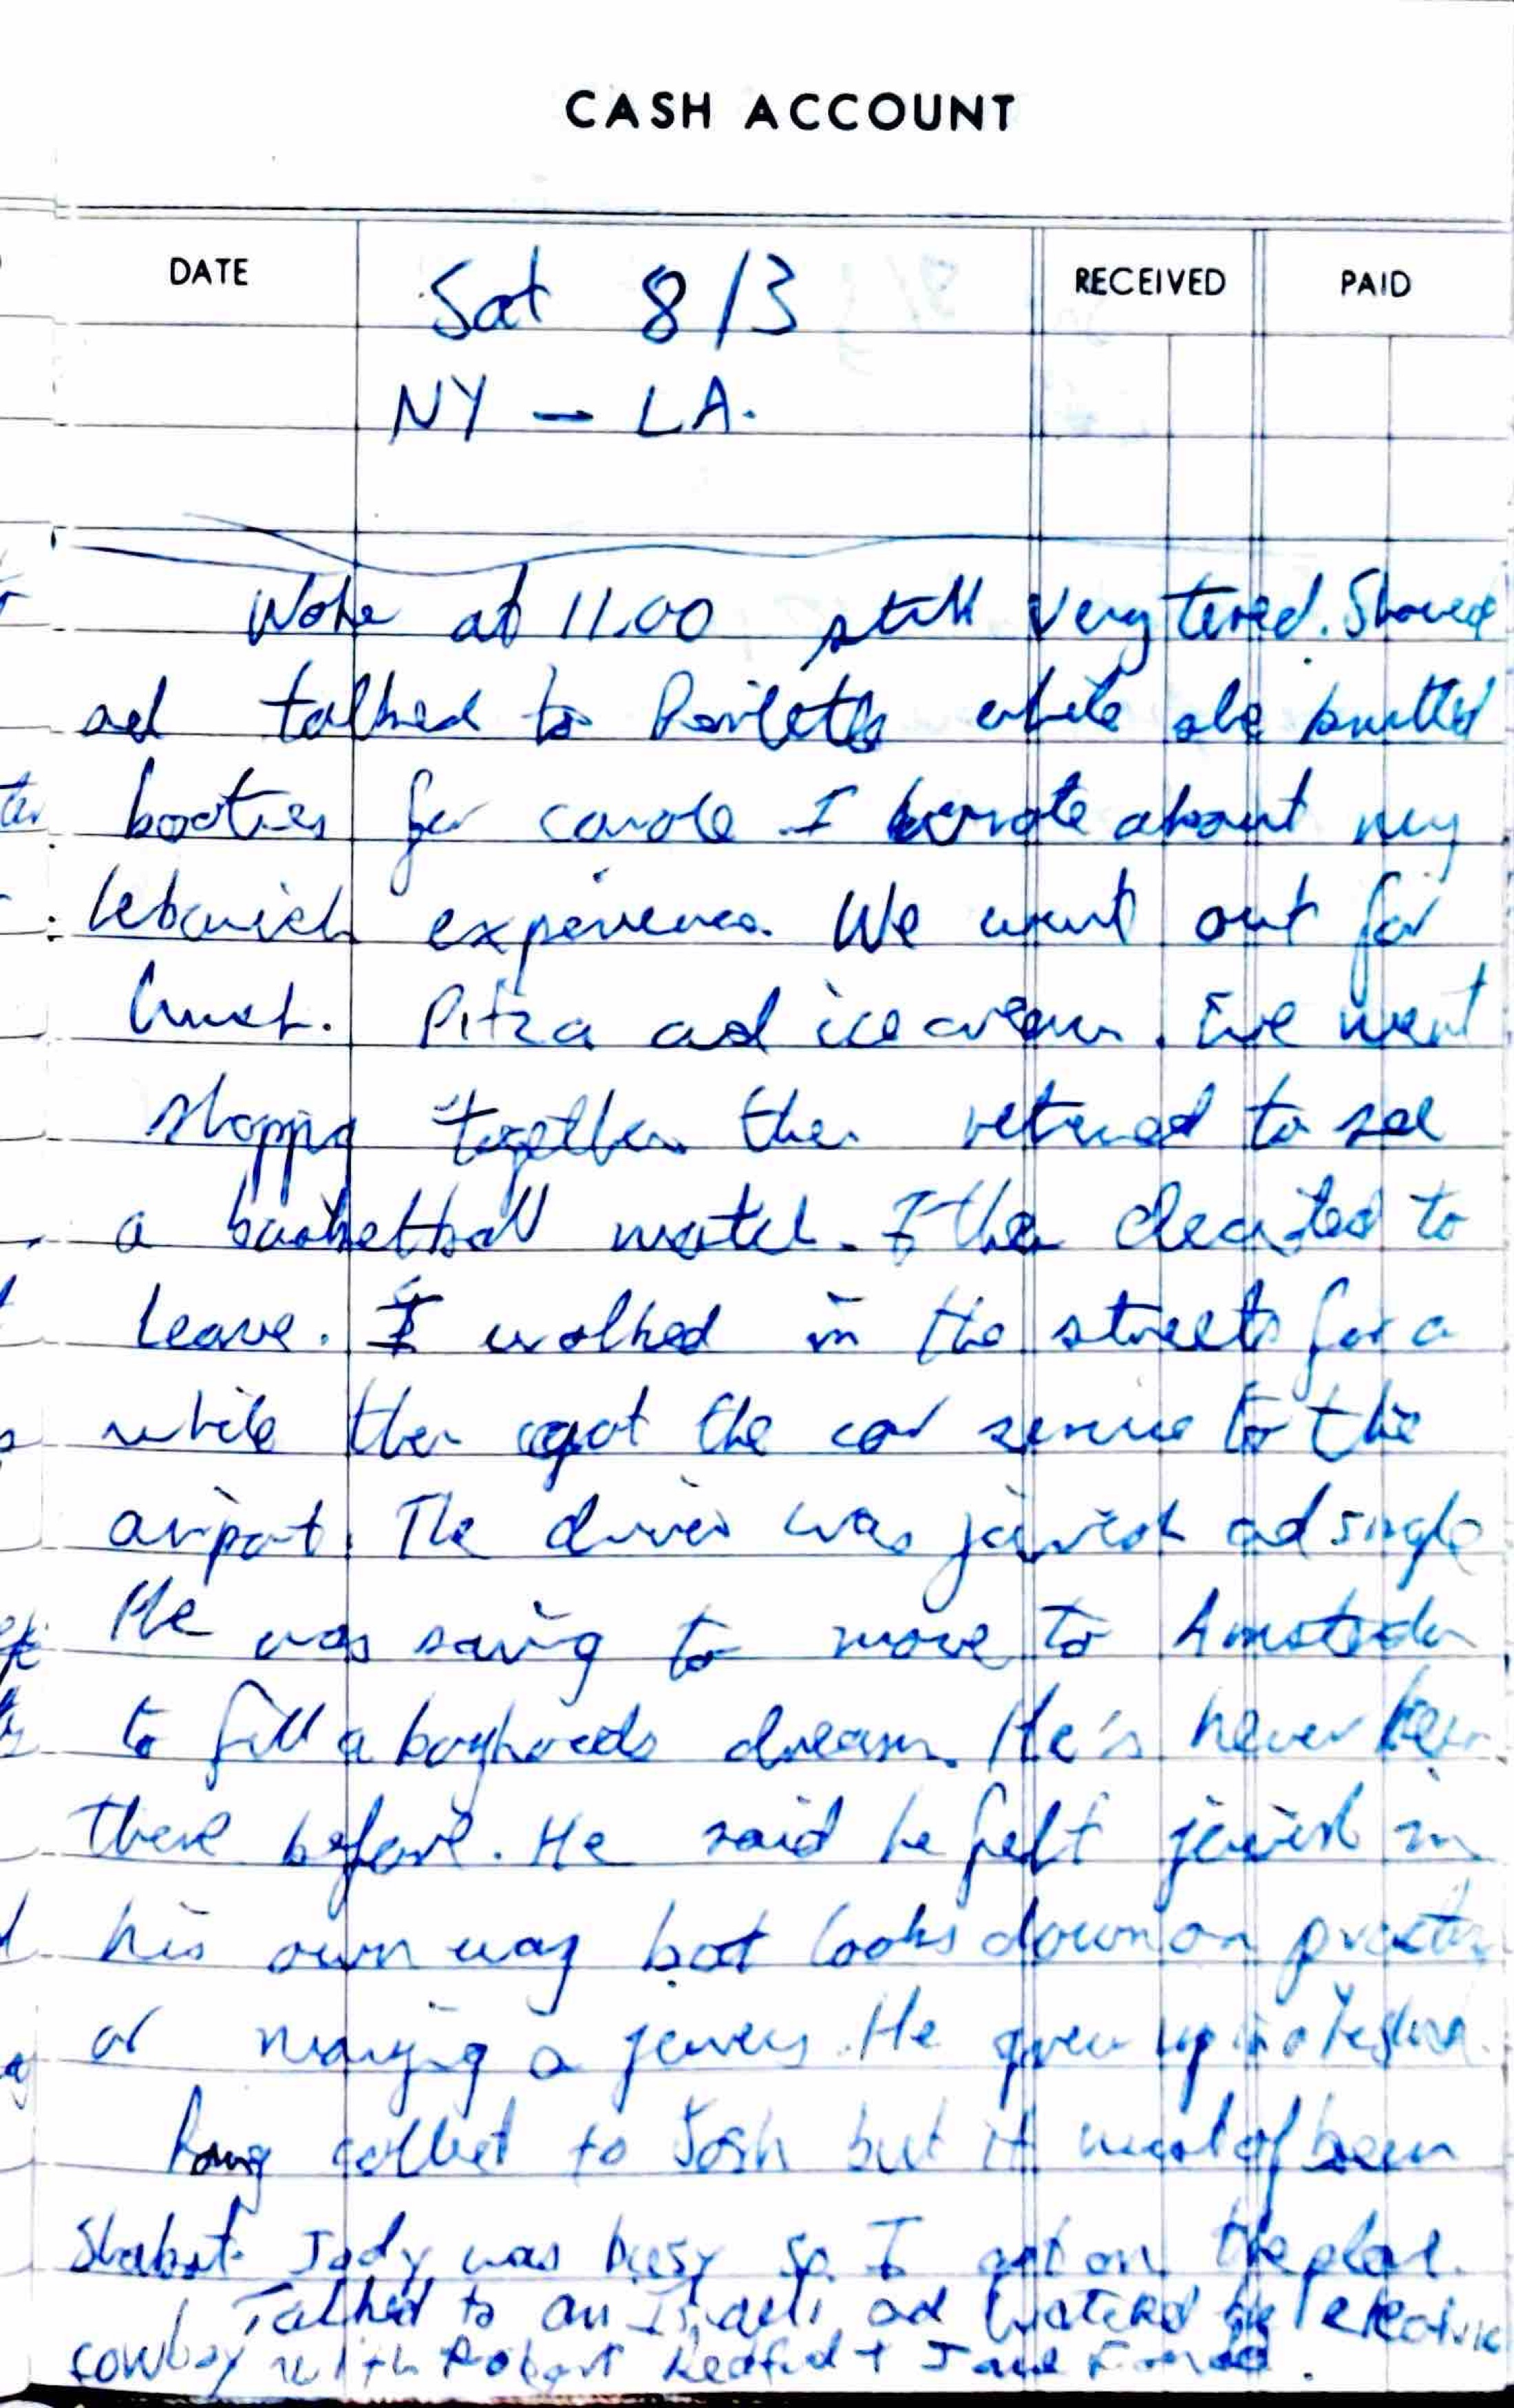 CASH ACCOUNT
DATE Sat 8/3 RECEIVED PAID
NY - LA.
Woke at 11.00 still very tired. Shaved
ad talked to while she knitted
booties for carole I wrote about my
lebavich experience. We went out for
lunch. Pitza ad ice cream. We went
shoppig together then returned to see
a basketball match. I then decided to
leave. I walked in the streets for a
while then got the car service to the
airport. The driver was jewish ad single
He was savig to move to Amsterdam
to fill a boyhoods dream. He's never been
there before. He said he felt jewish in
his own way but looks down on
or marryig a jewess. He grew up in a
Rang collect to Josh but it must of been
Shabat. Jody was busy so I got on the plane.
Talked to an Israeli ad watched the electric
cowboy with Robert Redford + Jane Fonda.